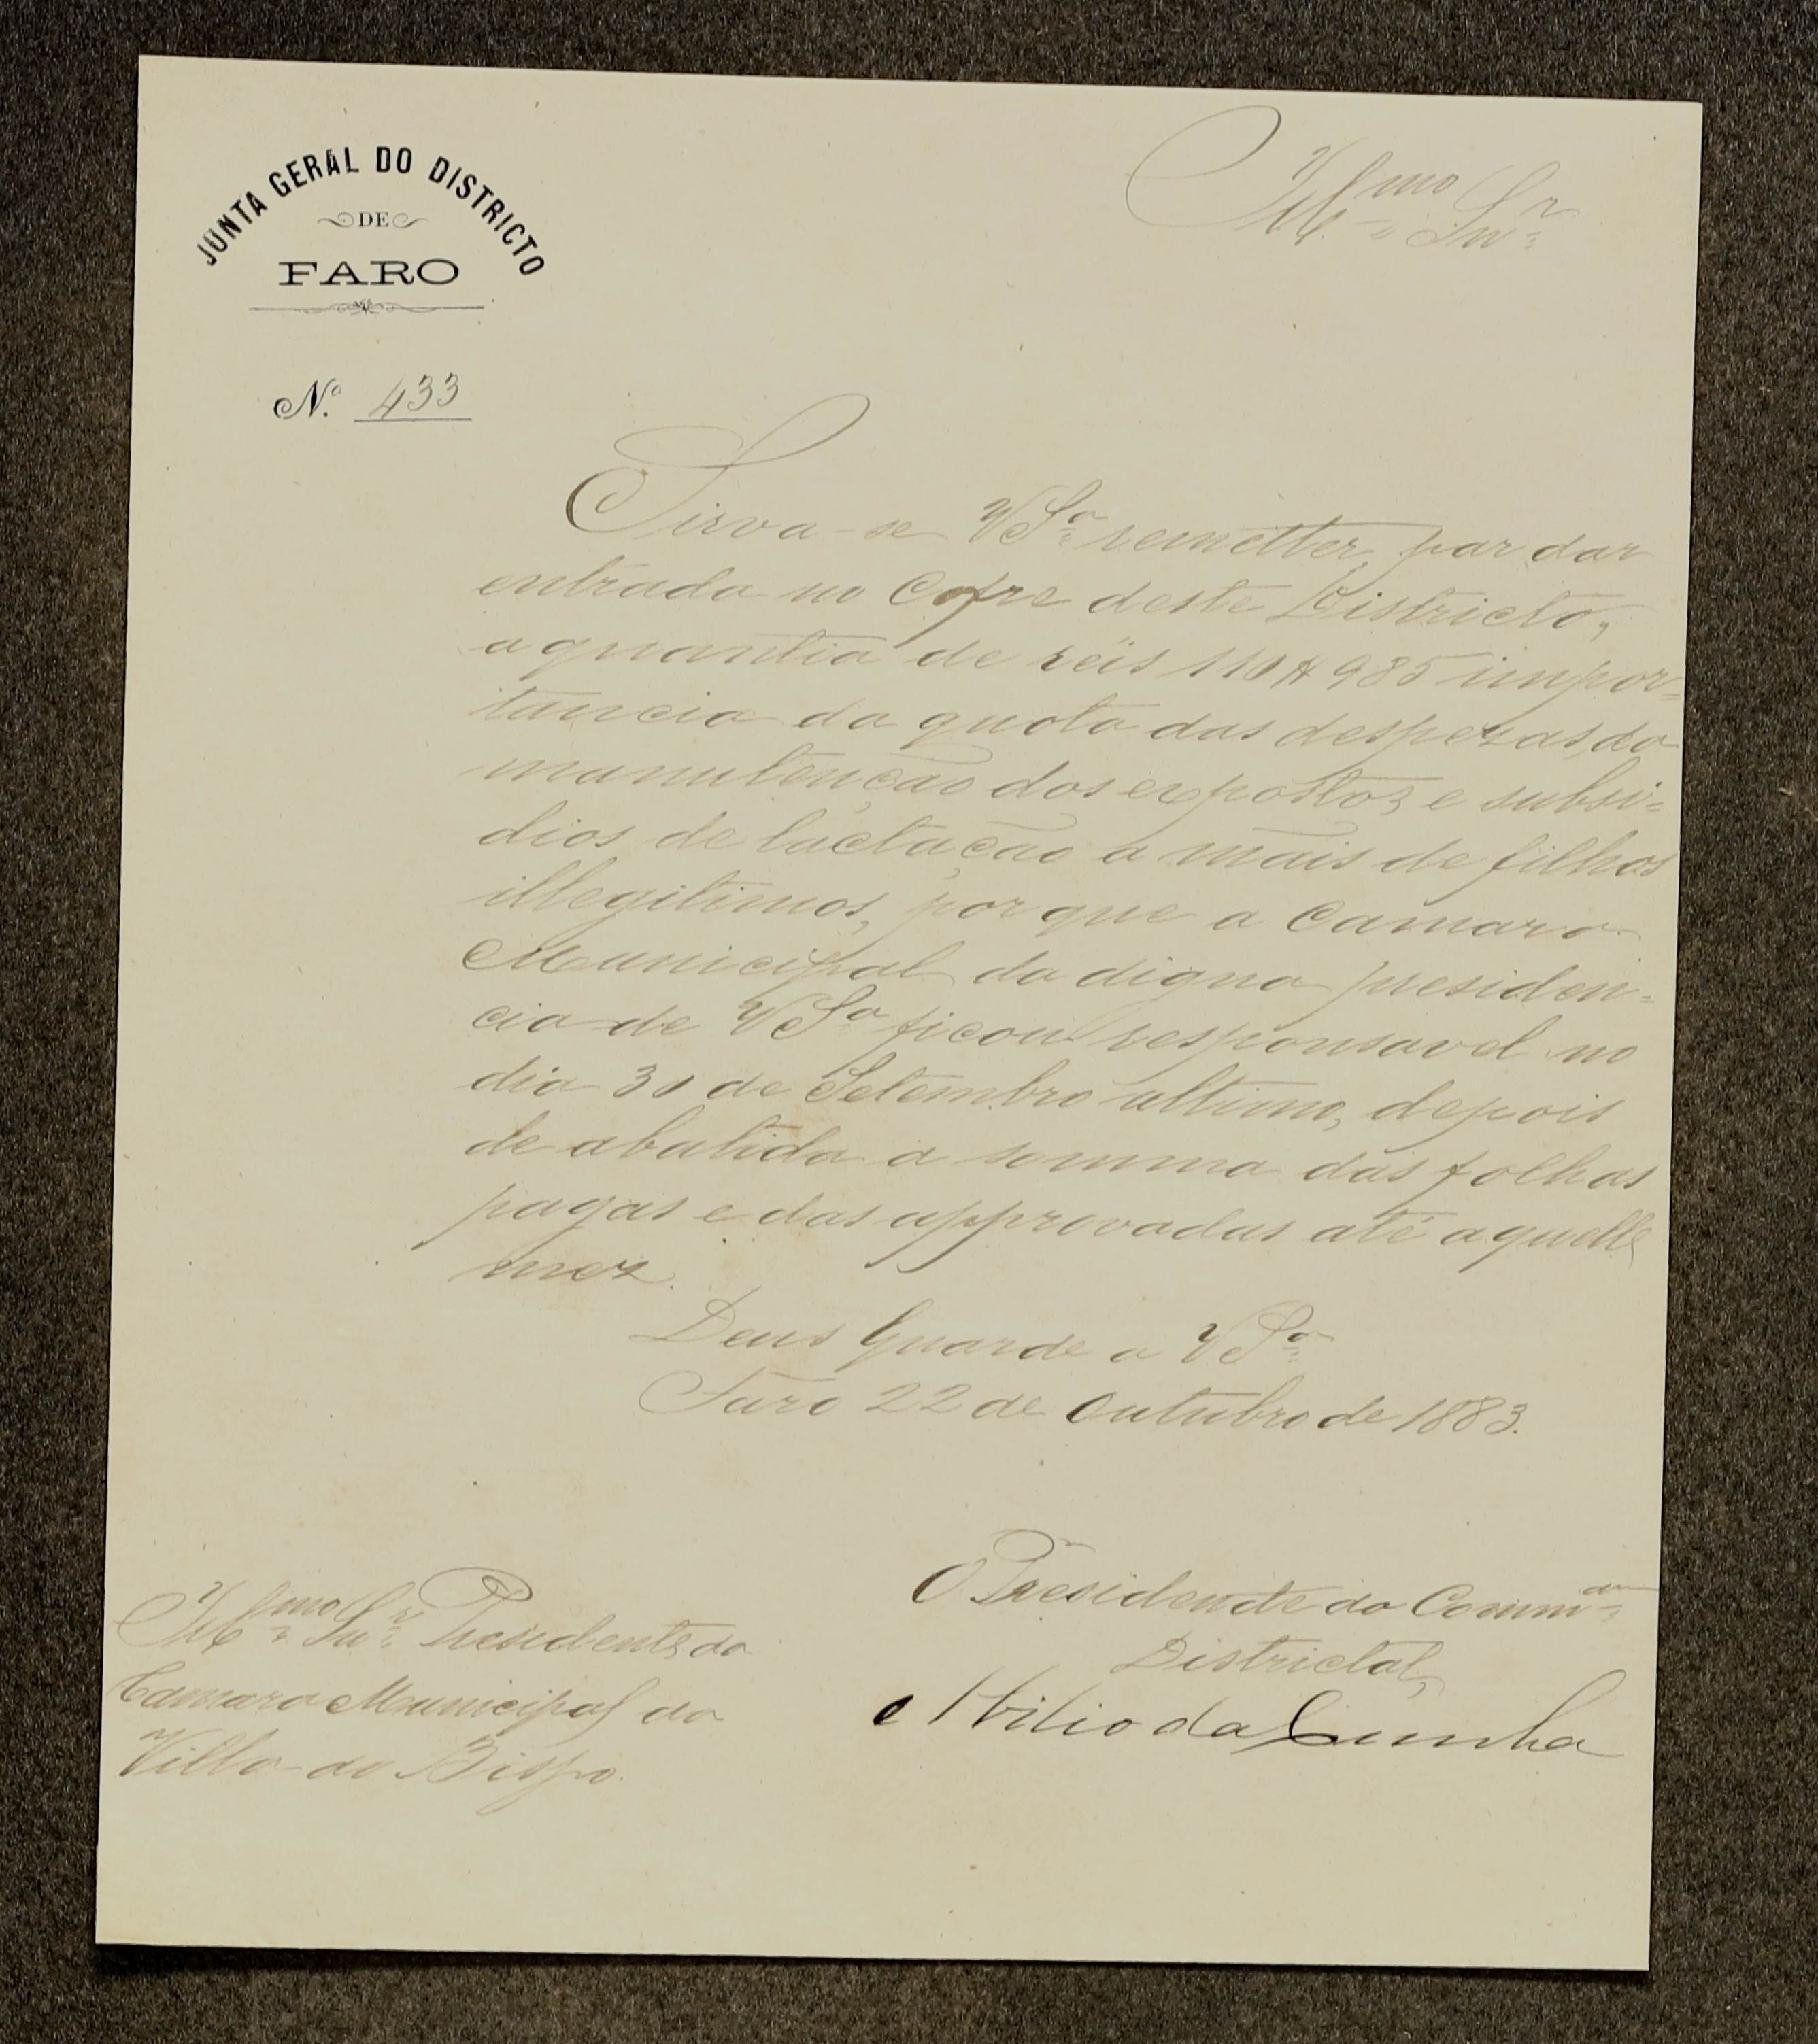 JUNTA GERAL DO DISTRICTO
DE
FARO
Nº 433
Illmo Snr
Sirva-se VSª remetter, par dar
entrada no Cofre deste Districto,
a quantia de réis 110$985 impor-
tancia da quota das despezas da
manutenção dos expostos, e subsi-
dios de lactação a mães de filhos
illegitimos, por que a Camara
Municipal da digna presiden-
cia de VSª ficou responsavel no
dia 30 de Setembro ultimo, depois
de abatida a somma das folhas
pagas e das approvadas até aquelle
mez.
Deus Guarde a VSª
Faro 22 de Outubro de 1883.
O Presidente da Commam
Districtal,
Abilio da Cunha
Illmo Snr Presidente da
Camara Municipal da
Villa do Bispo.